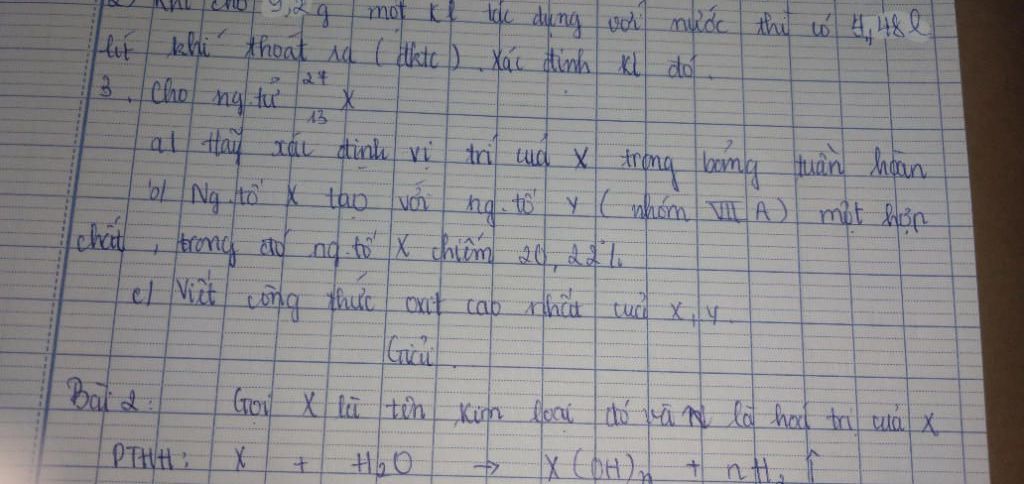 2) Khi cho 9,2g một KL tác dụng với nước thì có 4,48l
lít khí thoát ra (đktc). Xác định KL đó.
3. Cho ng.tử 27 13 X
a) Hãy xác định vị trí của X trong bảng tuần hoàn
b) Ng.tố X tạo với ng.tố Y (nhóm VII A) một hợp
chất, trong đó ng.tố X chiếm 20,22%.
c) Viết công thức oxit cao nhất của X, Y.
Giải
Bài 2: Gọi X là tên kim loại đó và n là hoá trị của X
PTHH: X + H2O → X(OH)n + nH2 ↑